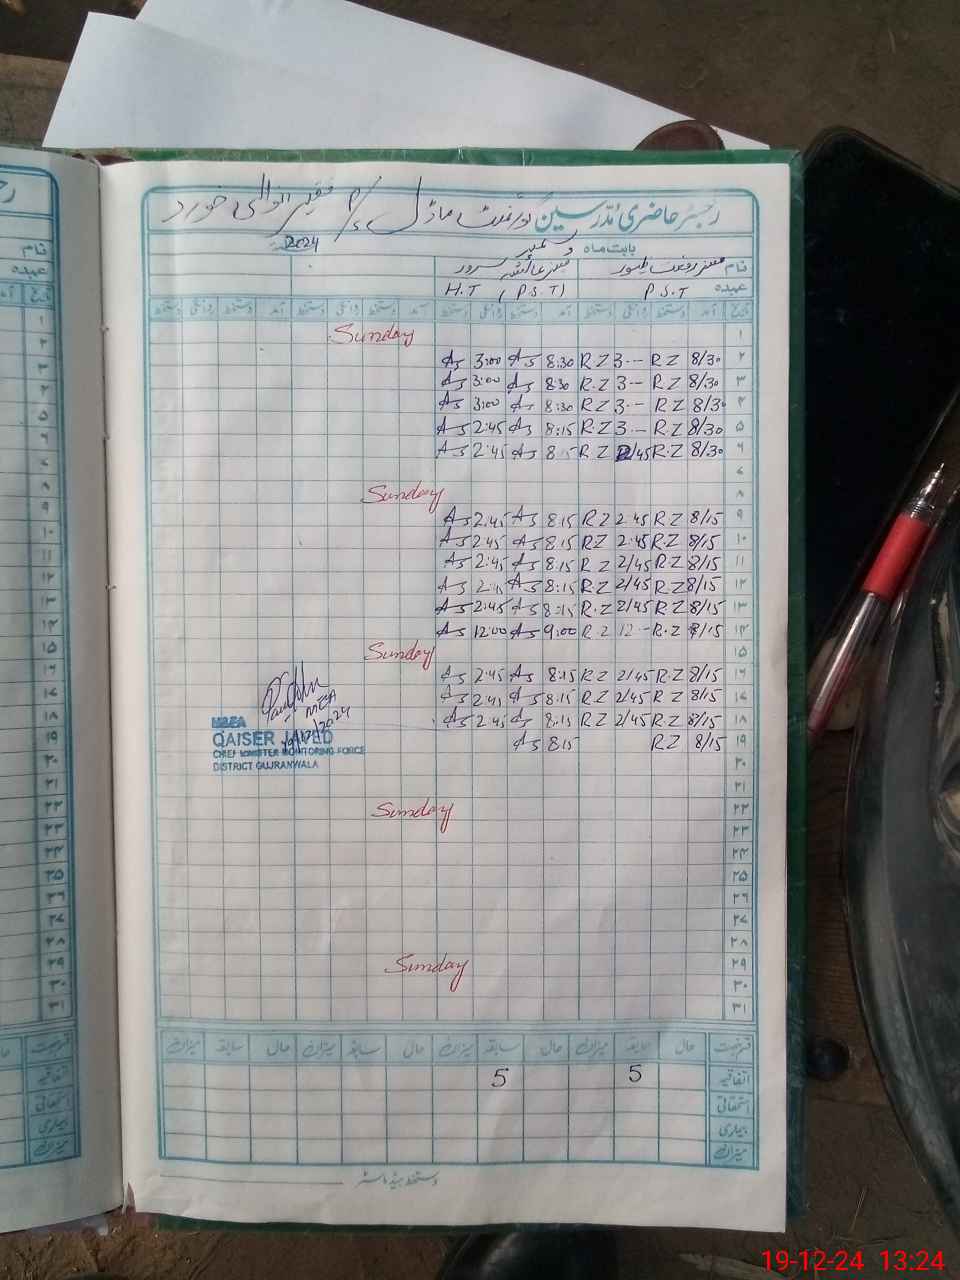 رجسٹر حاضری مدرسین گورنمنٹ ماڈل P/S فقیرانوالی خورد
بابت ماہ دسمبر 2024
نام مسز رفعت ظہور مسز عائشہ سرور
عہدہ P.S.T H.T (P.S.T)
تاریخ آمد دستخط روانگی دستخط آمد دستخط روانگی دستخط آمد دستخط روانگی دستخط آمد دستخط روانگی دستخط
۱ Sunday
۲ 8/30 R.Z 3-- R.Z 8:30 As 3:00 As
۳ 8/30 R.Z 3-- R.Z 8:30 As 3:00 As
۴ 8/30 R.Z 3-- R.Z 8:30 As 3:00 As
۵ 8/30 R.Z 3-- R.Z 8:15 As 2:45 As
۶ 8/30 R.Z 2/45 R.Z 8:15 As 2:45 As
۷
۸ Sunday
۹ 8/15 R.Z 2:45 R.Z 8:15 As 2:45 As
۱۰ 8/15 R.Z 2:45 R.Z 8:15 As 2:45 As
۱۱ 8/15 R.Z 2/45 R.Z 8:15 As 2:45 As
۱۲ 8/15 R.Z 2/45 R.Z 8:15 As 2:45 As
۱۳ 8/15 R.Z 2/45 R.Z 8:15 As 2:45 As
۱۴ 8/15 R.Z 12-- R.Z 9:00 As 12:00 As
۱۵ Sunday
۱۶ 8/15 R.Z 2/45 R.Z 8:15 As 2:45 As
۱۷ 8/15 R.Z 2/45 R.Z 8:15 As 2:45 As
۱۸ 8/15 R.Z 2/45 R.Z 8:15 As 2:45 As
۱۹ 8/15 R.Z 8:15 As
MEA
19/12/2024
MEA
QAISER JAVED
CHIEF MINISTER MONITORING FORCE
DISTRICT GUJRANWALA
۲۰
۲۱
۲۲ Sunday
۲۳
۲۴
۲۵
۲۶
۲۷
۲۸
۲۹ Sunday
۳۰
۳۱
قسم رخصت حال سابقہ میزان حال سابقہ میزان حال سابقہ میزان حال سابقہ میزان
اتفاقیہ 5 5
استحقاقی
بیماری
میزان
دستخط ہیڈ ماسٹر
19-12-24 13:24